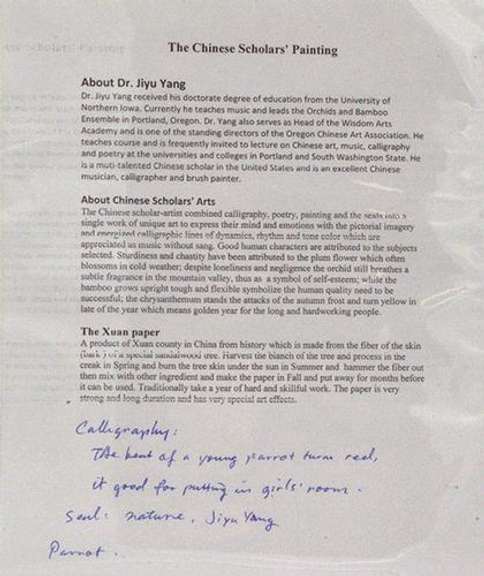 The Chinese Scholars' Painting
About Dr. Jiyu Yang
Dr. Jiyu Yang received his doctorate degree of education from the University of
Northern Iowa. Currently he teaches music and leads the Orchids and Bamboo
Ensemble in Portland, Oregon. Dr. Yang also serves as Head of the Wisdom Arts
Academy and is one of the standing directors of the Oregon Chinese Art Association. He
teaches course and is frequently invited to lecture on Chinese art, music, calligraphy
and poetry at the universities and colleges in Portland and South Washington State. He
is a muti-talented Chinese scholar in the United States and is an excellent Chinese
musician, calligrapher and brush painter.
About Chinese Scholars' Arts
The Chinese scholar-artist combined calligraphy, poetry, painting and the seals into a
single work of unique art to express their mind and emotions with the pictorial imagery
and energized calligraphic lines of dynamics, rhythm and tone color which are
appreciated as music without sang. Good human characters are attributed to the subjects
selected. Sturdiness and chastity have been attributed to the plum flower which often
blossoms in cold weather; despite loneliness and negligence the orchid still breathes a
subtle fragrance in the mountain valley, thus as a symbol of self-esteem; while the
bamboo grows upright tough and flexible symbolize the human quality need to be
successful; the chrysanthemum stands the attacks of the autumn frost and turn yellow in
late of the year which means golden year for the long and hardworking people.
The Xuan paper
A product of Xuan county in China from history which is made from the fiber of the skin
(bark ) of a special sandalwood tree. Harvest the bianch of the tree and process in the
creak in Spring and burn the tree skin under the sun in Summer and hammer the fiber out
then mix with other ingredient and make the paper in Fall and put away for months before
it can be used. Traditionally take a year of hard and skillful work. The paper is very
strong and long duration and has very special art effects.
Calligraphy:
The beat of a young parrot turn red,
it good for putting in girls' room.
Seal: nature, Jiyu Yang
Parrot.